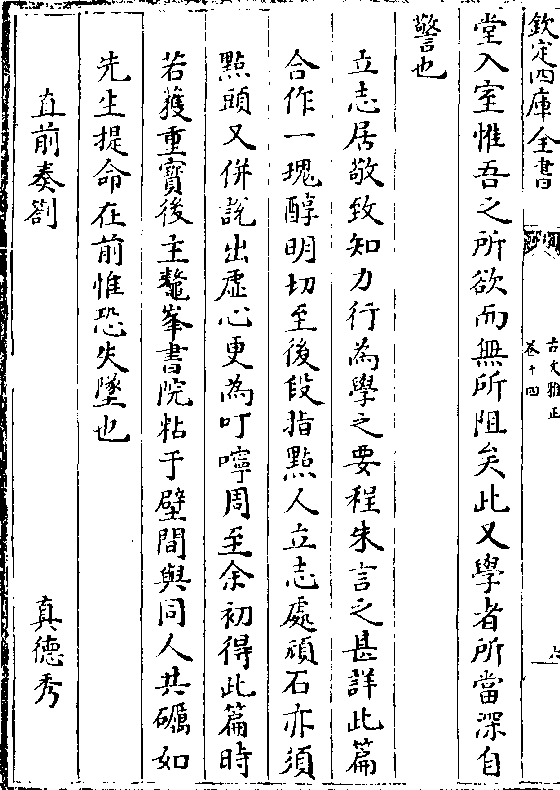 欽定四庫全書
古文雅正
卷十四
堂入室惟吾之所欲而無所阻矣此又學者所當深自
警也
立志居敬致知力行為學之要程朱言之甚詳此篇
合作一塊醇明切至後段指點人立志處頑石亦須
點頭又併說出虛心更為叮嚀周至余初得此篇時
若獲重寳後主鼇峯書院粘于壁間與同人共礪如
先生提命在前惟恐失墜也
直前奏劄
真德秀